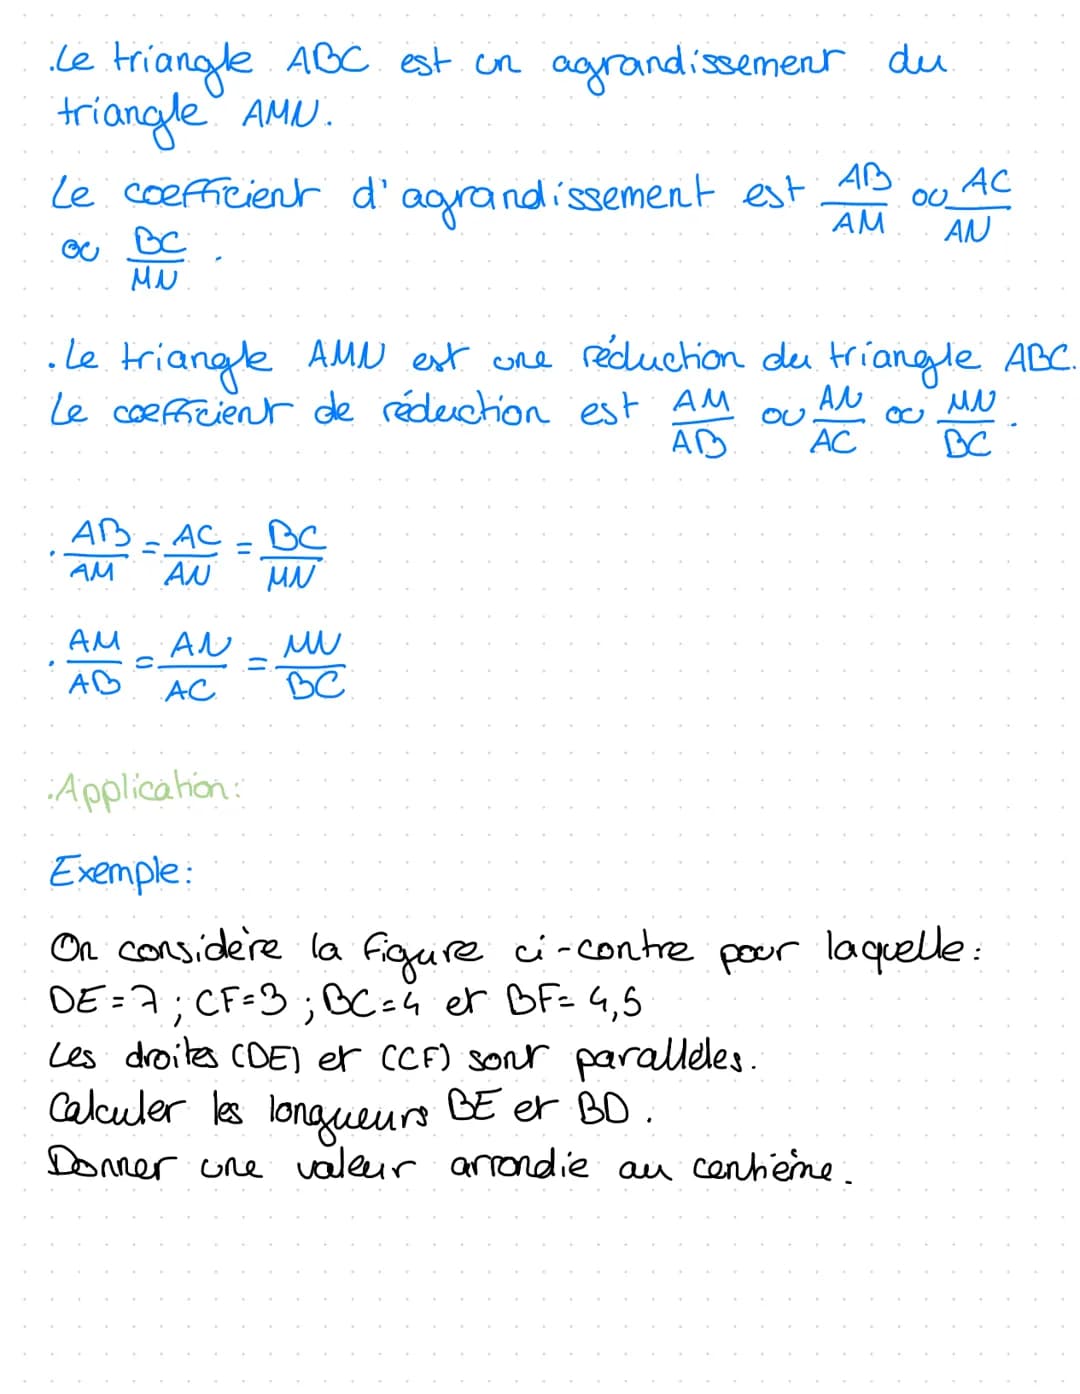 .Le triangle ABC est un agrandissement du
triangle AMN.
Le coefficient d'agrandissement est AB/AM ou AC/AN
ou BC/MN.
.Le triangle AMN est une réduction du triangle ABC.
Le coefficient de réduction est AM/AB ou AN/AC ou MN/BC.
. AB/AM = AC/AN = BC/MN
. AM/AB = AN/AC = MN/BC
.Application:
Exemple:
On considère la figure ci-contre pour laquelle:
DE=7; CF=3; BC=4 et BF=4,5
Les droites (DE) et (CF) sont parallèles.
Calculer les longueurs BE et BD.
Donner une valeur arrondie au centième.